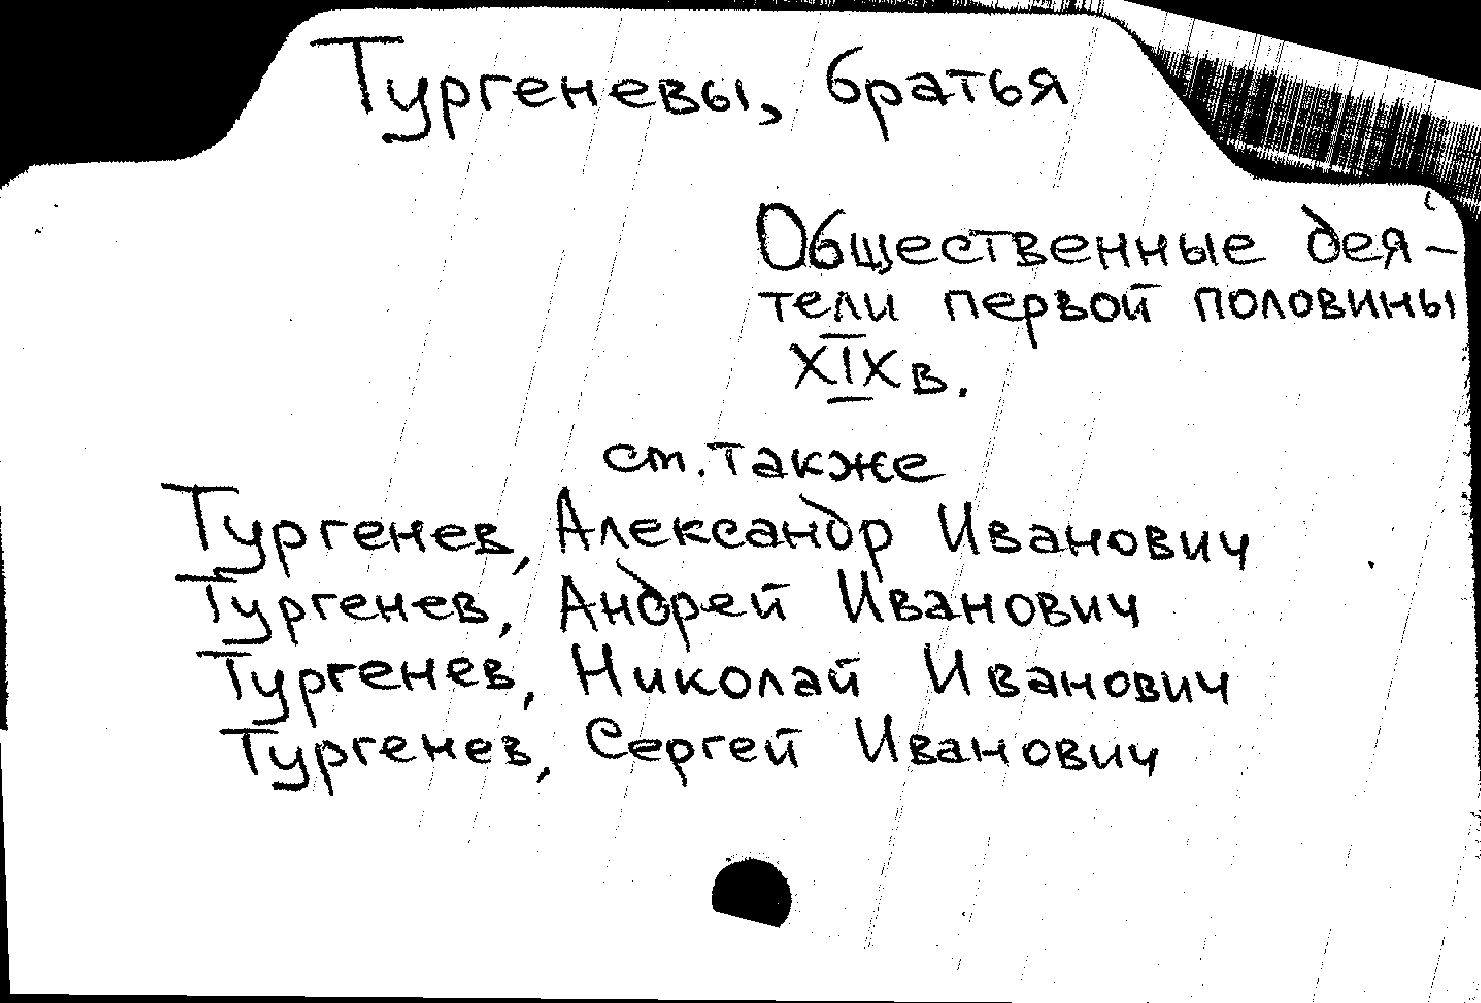 Тургеневы, братья
Общественные дея-
тели первой половины
XIX в.
см. также
Тургенев, Александр Иванович
Тургенев, Андрей Иванович
Тургенев, Николай Иванович
Тургенев, Сергей Иванович